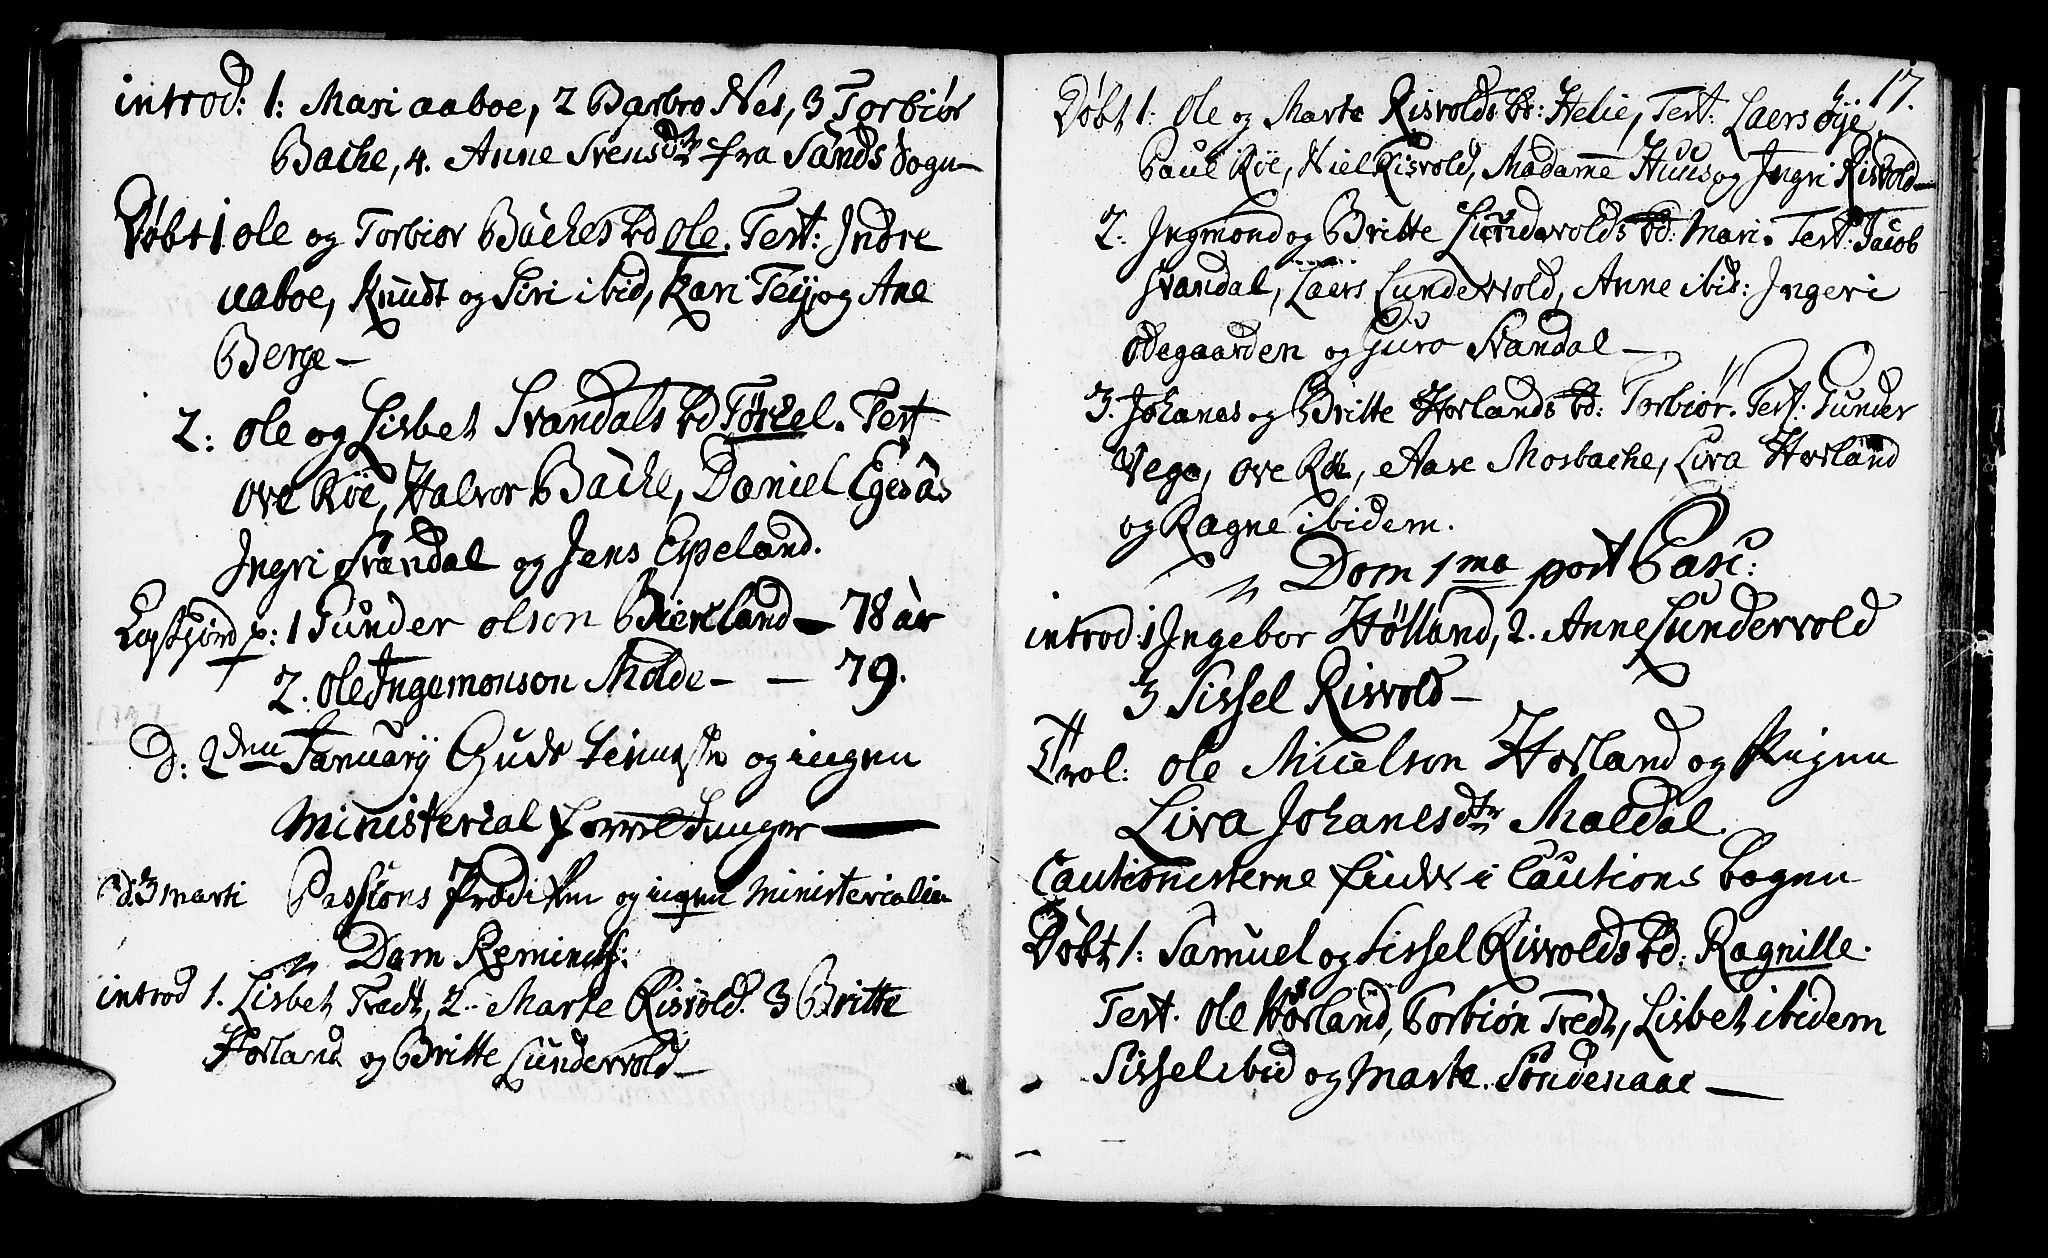 introd: 1: Mari aaboe, 2 Barbro Nes, 3 Torbiør
Bache, 4. Anne Svensdtr fra Sands Sogn—
Døbt 1 ole og Torbiør Baches bd ole. Test: Indre
aaboe, Knudt og Siri ibid, Kari Teij og Ane
Berge—
2: ole og Lisbet Svandals bd Törkel. Test
ove Röe, Halvor Bache, Daniel Egesås
Ingri Svandal og Jens Espeland.
1 Gunder olson Birkland — 78 år
2. ole Ingemonson Molde — — 79.
D: 2den Januarij Guds tieneste og ingen
Ministerial forretninger —
D: 3 marti Passions Prædiken og ingen Ministerialia
Dom Reminisc:
introd 1. Lisbet Tredt, 2. Marte Risvold. 3 Britte
Horland og Britte Lundervold—
17.
Døbt 1: Ole og Marte Risvolds bd: Helie, Test: Laers öÿe,
Paul Röe, Niel Risvold, Madame Huus og Ingri Risvold—
2: Ingmond og Britte Lundervolds bd: Mari. Test: Jacob
Svandal, Laers Lundervold, Anne ibid: Ingeri
ødegaarden og Guro Svandal—
3. Johanes og Britte Horlands bd: Torbiør. Test: Gunder
Vega, ove Röe, Aase Mosbache, Liva Horland
og Ragne ibidem.
Dom 1ma post Pasc:
introd: 1 Ingebor Hölland, 2. Anne Lundervold
3 Sissel Risvold—
Trol: ole Nielson Horland og Pigen
Liva Johanesdtr Maldal
Cautionisterne findes i Cautions bogen
Døbt 1: Samuel og Sissel Risvolds bd: Ragnille.
Test. Ole Horland, Torbiøn Tredt, Lisbet ibidem
Sissel ibid og Marte Söndenaae—